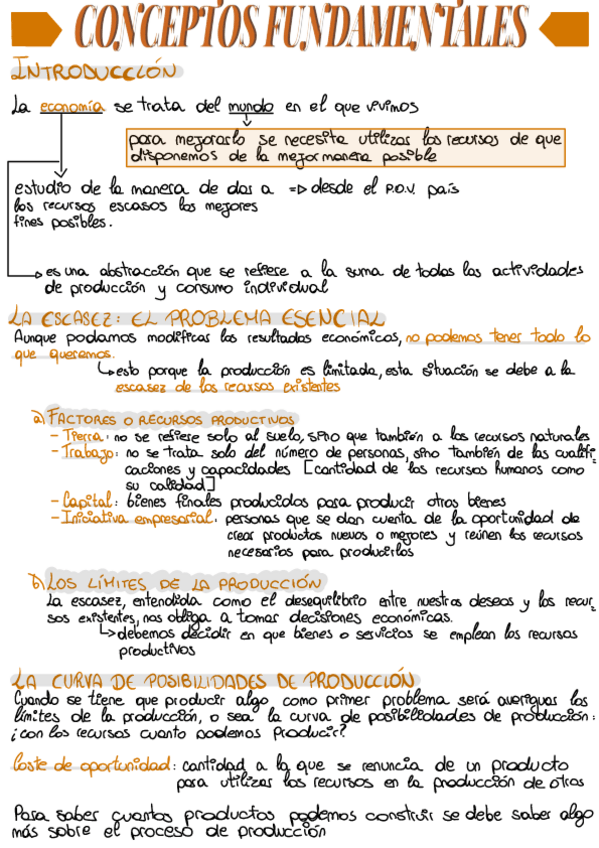 CONCEPTOS FUNDAMENTALES
INTRODUCCIÓN
La economía se trata del mundo en el que vivimos
para mejorarlo se necesita utilizar los recursos de que
disponemos de la mejor manera posible
estudio de la manera de dar a => desde el P.O.V. país
los recursos escasos los mejores
fines posibles.
es una abstracción que se refiere a la suma de todas las actividades
de producción y consumo individual
LA ESCASEZ: EL PROBLEMA ESENCIAL
Aunque podamos modificar los resultados económicos, no podemos tener todo lo
que queremos.
esto porque la producción es limitada, esta situación se debe a la
escasez de los recursos existentes
a) FACTORES O RECURSOS PRODUCTIVOS
- Tierra: no se refiere solo al suelo, sino que también a los recursos naturales
- Trabajo: no se trata solo del número de personas, sino también de las cualifi-
caciones y capacidades [cantidad de los recursos humanos como
su calidad]
- Capital: bienes finales producidos para producir otros bienes
- Iniciativa empresarial: personas que se dan cuenta de la oportunidad de
crear productos nuevos o mejores y reúnen los recursos
necesarios para producirlos
b) LOS LÍMITES DE LA PRODUCCIÓN
La escasez, entendida como el desequilibrio entre nuestros deseos y los recur-
sos existentes, nos obliga a tomar decisiones económicas.
debemos decidir en que bienes o servicios se emplean los recursos
productivos
LA CURVA DE POSIBILIDADES DE PRODUCCIÓN
Cuando se tiene que producir algo como primer problema será averiguar los
límites de la producción, o sea la curva de posibilidades de producción:
¿con los recursos cuanto podemos producir?
Coste de oportunidad: cantidad a la que se renuncia de un producto
para utilizar los recursos en la producción de otros
Para saber cuantos productos podemos construir se debe saber algo
más sobre el proceso de producción